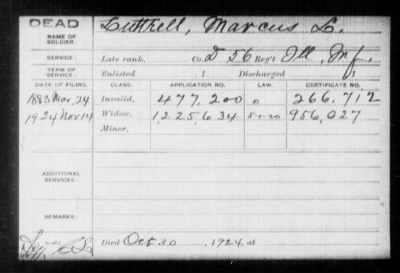 DEAD
NAME OF SOLDIER: Luttrell, Marcus L.
SERVICE: Late rank, Co. D, 56 Reg't Ill. Inf.
TERM OF SERVICE: Enlisted , 1 Discharged , 1
DATE OF FILING. CLASS. APPLICATION NO. LAW. CERTIFICATE NO.
1883 Nov. 24 Invalid, 477,200 0 266,712
1924 Nov 14 Widow, 1225634 5-1-20 956,027
Minor,
ADDITIONAL SERVICES:
REMARKS:
Died Oct 30, 1924, at